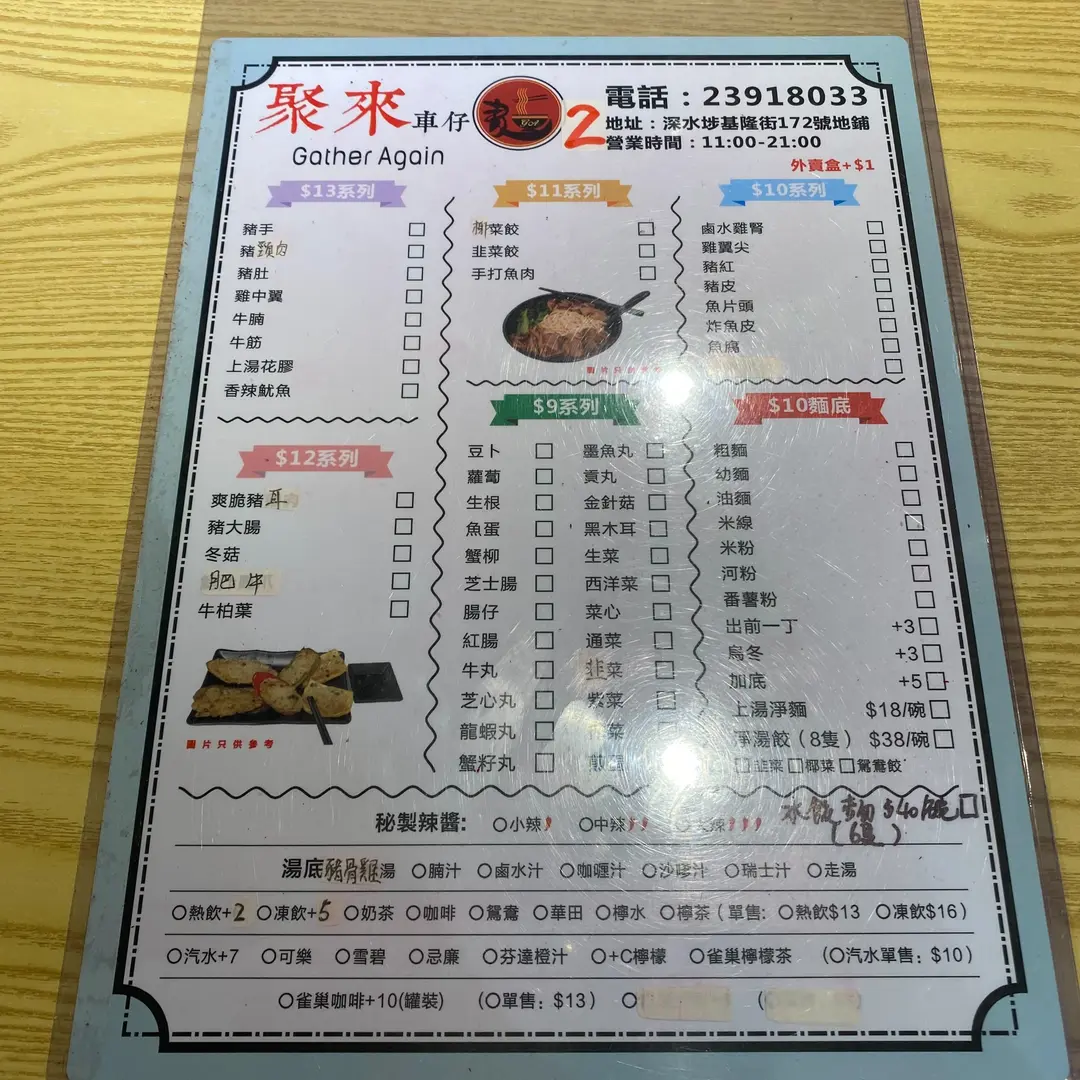 聚來車仔麵
2
Gather Again
電話：23918033
地址：深水埗基隆街172號地鋪
營業時間：11:00-21:00
外賣盒+$1
$13系列
豬手
豬頸肉
豬肚
雞中翼
牛腩
牛筋
上湯花膠
香辣魷魚
$12系列
爽脆豬耳
豬大腸
冬菇
肥牛
牛柏葉
圖片只供參考
$11系列
椰菜餃
韭菜餃
手打魚肉
圖片只供參考
$10系列
鹵水雞腎
雞翼尖
豬紅
豬皮
魚片頭
炸魚皮
魚腐
$9系列
豆卜
蘿蔔
生根
魚蛋
蟹柳
芝士腸
腸仔
紅腸
牛丸
芝心丸
龍蝦丸
蟹籽丸
墨魚丸
貢丸
金針菇
黑木耳
生菜
西洋菜
菜心
通菜
韭菜
紫菜
菜
$10麵底
粗麵
幼麵
油麵
米線
米粉
河粉
番薯粉
出前一丁 +3
烏冬 +3
加底 +5
上湯淨麵 $18/碗
淨湯餃（8隻） $38/碗
韭菜 椰菜 鴛鴦餃
水餃麵 $40/碗
(6隻)
秘製辣醬: 小辣 中辣 大辣
湯底 豬骨雞湯 腩汁 鹵水汁 咖喱汁 沙嗲汁 瑞士汁 走湯
熱飲+2 凍飲+5 奶茶 咖啡 鴛鴦 華田 檸水 檸茶（單售: 熱飲$13 凍飲$16）
汽水+7 可樂 雪碧 忌廉 芬達橙汁 +C檸檬 雀巢檸檬茶 （汽水單售: $10）
雀巢咖啡+10(罐裝) （單售: $13）